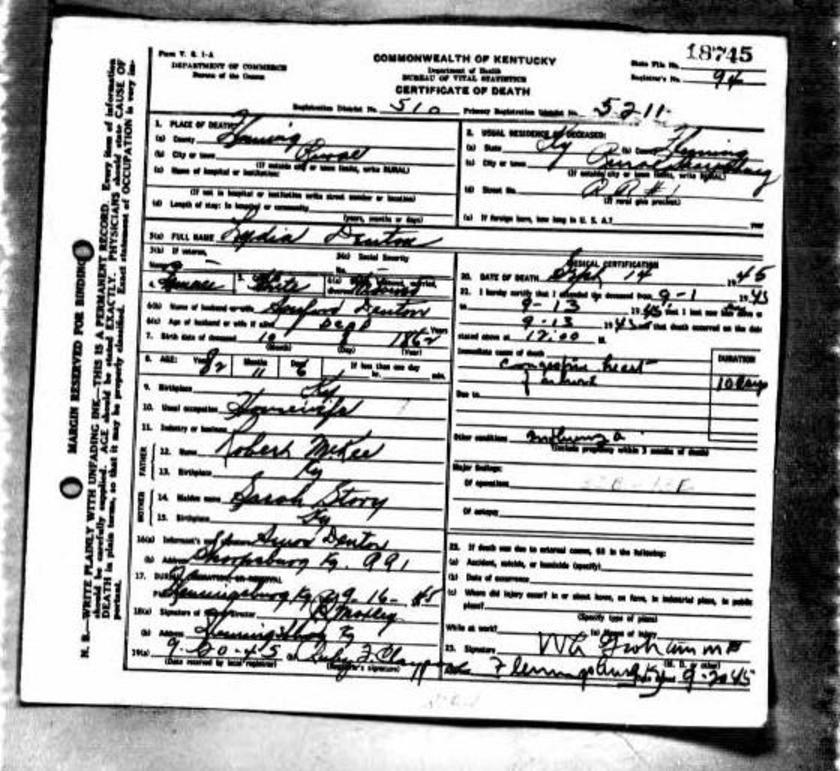 Form V. S. 1-A
DEPARTMENT OF COMMERCE
Bureau of the Census
COMMONWEALTH OF KENTUCKY
Department of Health
BUREAU OF VITAL STATISTICS
CERTIFICATE OF DEATH
State File No. 18745
Registrar's No. 94
Registration District No. 510 Primary Registration District No. 5211
1. PLACE OF DEATH:
(a) County Fleming
(b) City or town Rural
(If outside city or town limits, write RURAL)
(c) Name of hospital or institution:
(If not in hospital or institution write street number or location)
(d) Length of stay: In hospital or community
(years, months or days)
2. USUAL RESIDENCE OF DECEASED:
(a) State Ky (b) County Fleming
(c) City or town Rural
(If outside city or town limits, write RURAL)
(d) Street No. R R #1
(If rural give precinct)
(e) If foreign born, how long in U. S. A.? years
3(a) FULL NAME Lydia Denton
3(b) If veteran, 3(c) Social Security
No.
4. Female 5. White 6(a)
6(b) Name of husband or wife Denton
6(c) Age of husband or wife if alive Years
7. Birth date of deceased 10 8 1862
(Month) (Day) (Year)
8. AGE: Years 82 Months 11 Days 6 If less than one day
hr. min.
9. Birthplace Ky
10. Usual occupation Housewife
11. Industry or business
FATHER
12. Name Robert McKee
13. Birthplace Ky
MOTHER
14. Maiden name Sarah Story
15. Birthplace Ky
16(a) Informant's Denton
(b) Address Sharpsburg Ky. RR1
17. BURIAL, CREMATION OR REMOVAL
Flemingsburg Ky 9-16-45
18(a) Signature of Director
(b) Address Flemingsburg Ky
19(a) 9-20-45 (b)
(Date received by local registrar) (Registrar's signature)
MEDICAL CERTIFICATION
20. DATE OF DEATH Sept 14 1945
I hereby certify that I attended the deceased from 9-1 1945
to 9-13 1945 that I last saw
9-13 1945 and that death occurred on the date
stated above at 12:00 M.
Immediate cause of death
congestive heart
failure
DURATION
10 days
Due to
Other conditions Influenza
(Include pregnancy within 3 months of death)
Major findings:
Of operations
Of autopsy
22. If death was due to external causes, fill in the following:
(a) Accident, suicide, or homicide (specify)
(b) Date of occurrence
(c) Where did injury occur? In or about home, on farm, in industrial place, in public
place?
(Specify type of place)
While at work? (e) Means of injury
23. Signature
(M. D. or other)
Flemingsburg Ky 9-20-45
MARGIN RESERVED FOR BINDING
N. B.—WRITE PLAINLY WITH UNFADING INK—THIS IS A PERMANENT RECORD. Every item of information
should be carefully supplied. AGE should be stated EXACTLY. PHYSICIANS should state CAUSE OF
DEATH in plain terms, so that it may be properly classified. Exact statement of OCCUPATION is very im-
portant.